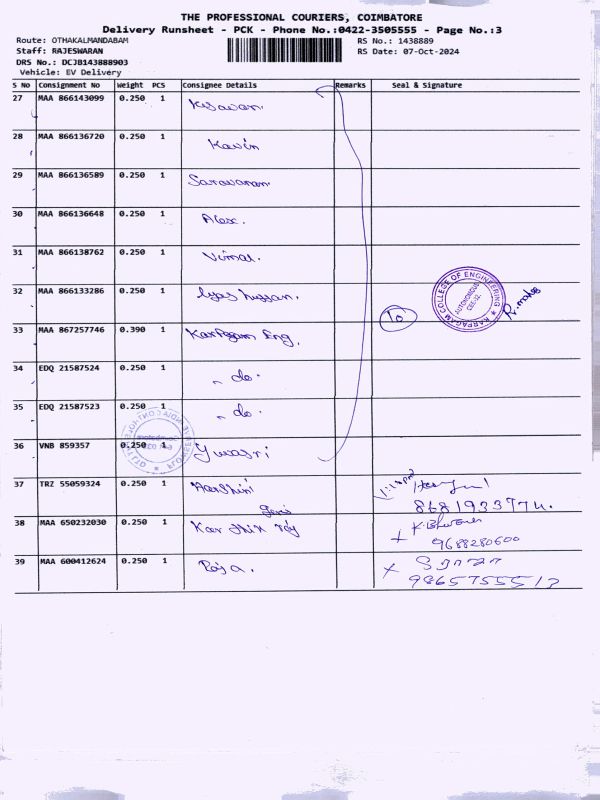 THE PROFESSIONAL COURIERS, COIMBATORE
Delivery Runsheet - PCK - Phone No.:0422-3505555 - Page No.:3
Route: OTHAKALMANDABAM RS No.: 1438889
Staff: RAJESWARAN RS Date: 07-Oct-2024
DRS No.: DCJB143888903
Vehicle: EV Delivery
S No Consignment No Weight PCS Consignee Details Remarks Seal & Signature
27 MAA 866143099 0.250 1
28 MAA 866136720 0.250 1 Kavin
29 MAA 866136589 0.250 1 Saravanan
30 MAA 866136648 0.250 1 Alex.
31 MAA 866138762 0.250 1 Vimal.
32 MAA 866133286 0.250 1
KARPAGAM COLLEGE OF ENGINEERING
AUTONOMOUS
10
33 MAA 867257746 0.390 1 Karpagam Eng.
34 EDQ 21587524 0.250 1 - do -
35 EDQ 21587523 0.250 1 - do -
36 VNB 859357 0.250 1 Yuvasri
37 TRZ 55059324 0.250 1 Harshini
8681933774.
38 MAA 650232030 0.250 1 Karthik
9688280600
39 MAA 600412624 0.250 1 Raja.
9865755512